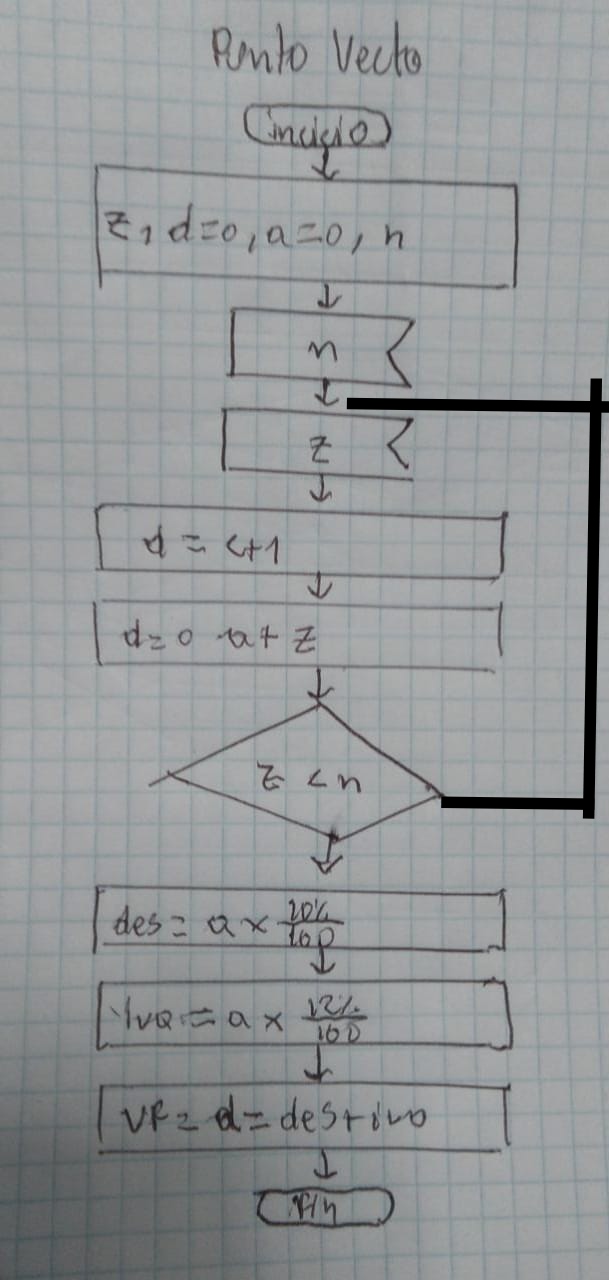 Punto Vecto
inicio
z, d=0, a=0, n
n
z
d = c+1
d=0 a+ z
z < n
des = a x 20% / 100
iva = a x 12% / 100
VF = d = des + iva
Fin